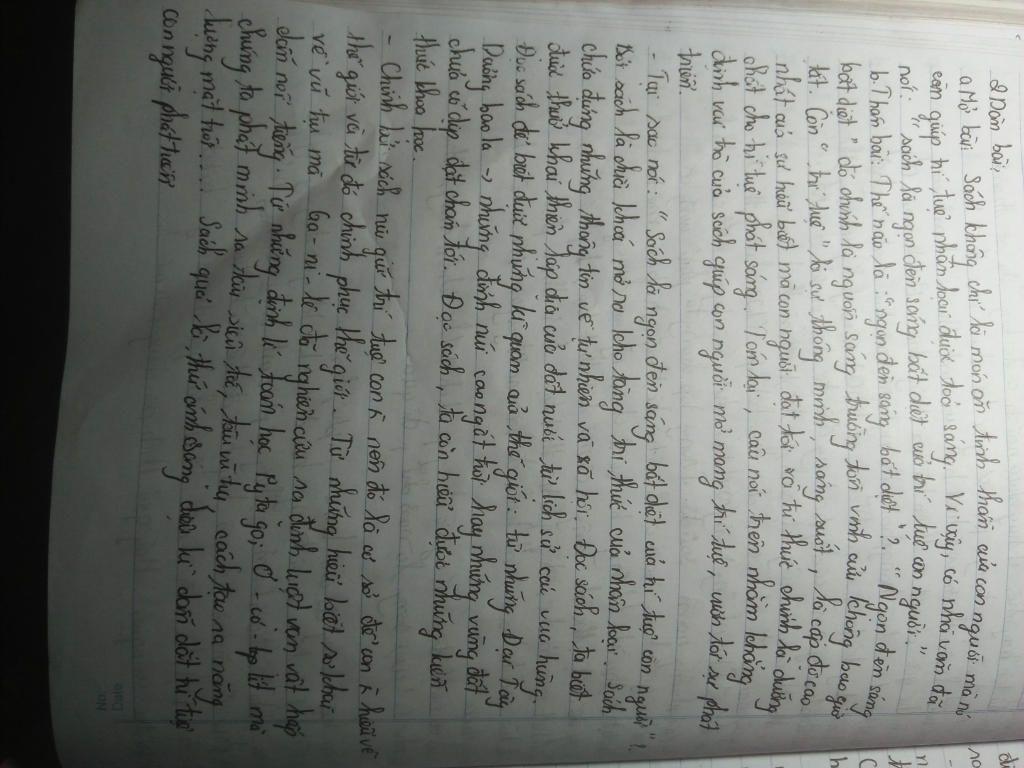 2. Dàn bài:
a. Mở bài: Sách không chỉ là món ăn tinh thần của con người mà nó
còn giúp trí tuệ nhân loại được toả sáng. Vì vậy, có nhà văn đã
nói: "sách là ngọn đèn sáng bất diệt của trí tuệ con người."
b. Thân bài: Thế nào là "ngọn đèn sáng bất diệt"? "Ngọn đèn sáng
bất diệt" đó chính là nguồn sáng trường tồn vĩnh cửu không bao giờ
tắt. Còn "trí tuệ" là sự thông minh sáng suốt, là cấp độ cao
nhất của sự hiểu biết mà con người đạt tới và tri thức chính là dưỡng
chất cho trí tuệ phát sáng. Tóm lại, câu nói trên nhằm khẳng
định vai trò của sách giúp con người mở mang trí tuệ, vươn tới sự phát
triển.
- Tại sao nói: "sách là ngọn đèn sáng bất diệt của trí tuệ con người"?
Bởi sách là chìa khoá mở ra kho tàng tri thức của nhân loại. Sách
chứa đựng những thông tin về tự nhiên và xã hội. Đọc sách, ta biết
được thuở khai thiên lập địa của đất nước, từ lịch sử các vua hùng.
Đọc sách để biết được những kì quan của thế giới: từ những Đại Tây
Dương bao la → những đỉnh núi cao ngất trời hay những vùng đất
chưa có dịp đặt chân tới. Đọc sách, ta còn hiểu được những kiến
thức khoa học.
- Chính bởi sách nắm giữ trí tuệ con người nên đó là cơ sở để con người hiểu về
thế giới và từ đó chinh phục thế giới. Từ những hiểu biết sơ khai
về vũ trụ mà Ga-ni-lê đã nghiên cứu ra định luật vạn vật hấp
dẫn nổi tiếng. Từ những định lí toán học Pytago, Ơ-cơ-lit mà
chúng ta phát minh ra tàu siêu tốc, tàu vũ trụ, cách tạo ra năng
lượng mặt trời.... Sách quả là thứ ánh sáng diệu kì dẫn dắt trí tuệ
con người phát triển